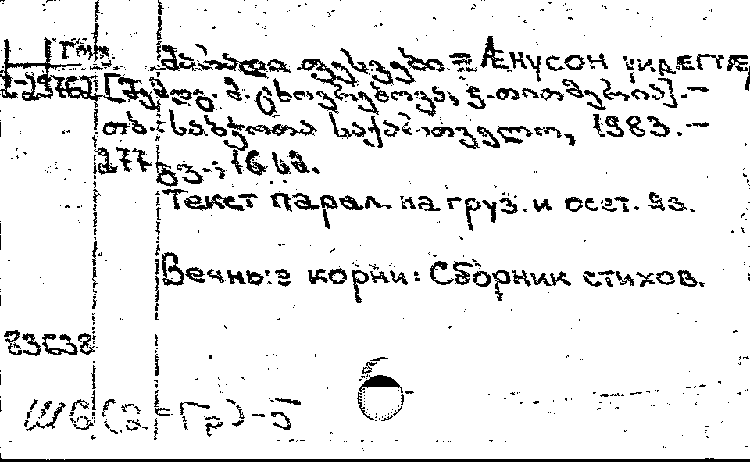 მარადი ფესვები = Æнусон уидæгтæ
[შემდგ. მ. ცხოვრებოვა, ვ. თითმერია]. –
თბ.: საბჭოთა საქართველო, 1983. –
277 გვ.; 16 სმ.
Текст парал. на груз. и осет. яз.
Вечные корни: Сборник стихов.
83638
Ш6(2=Гр)-5